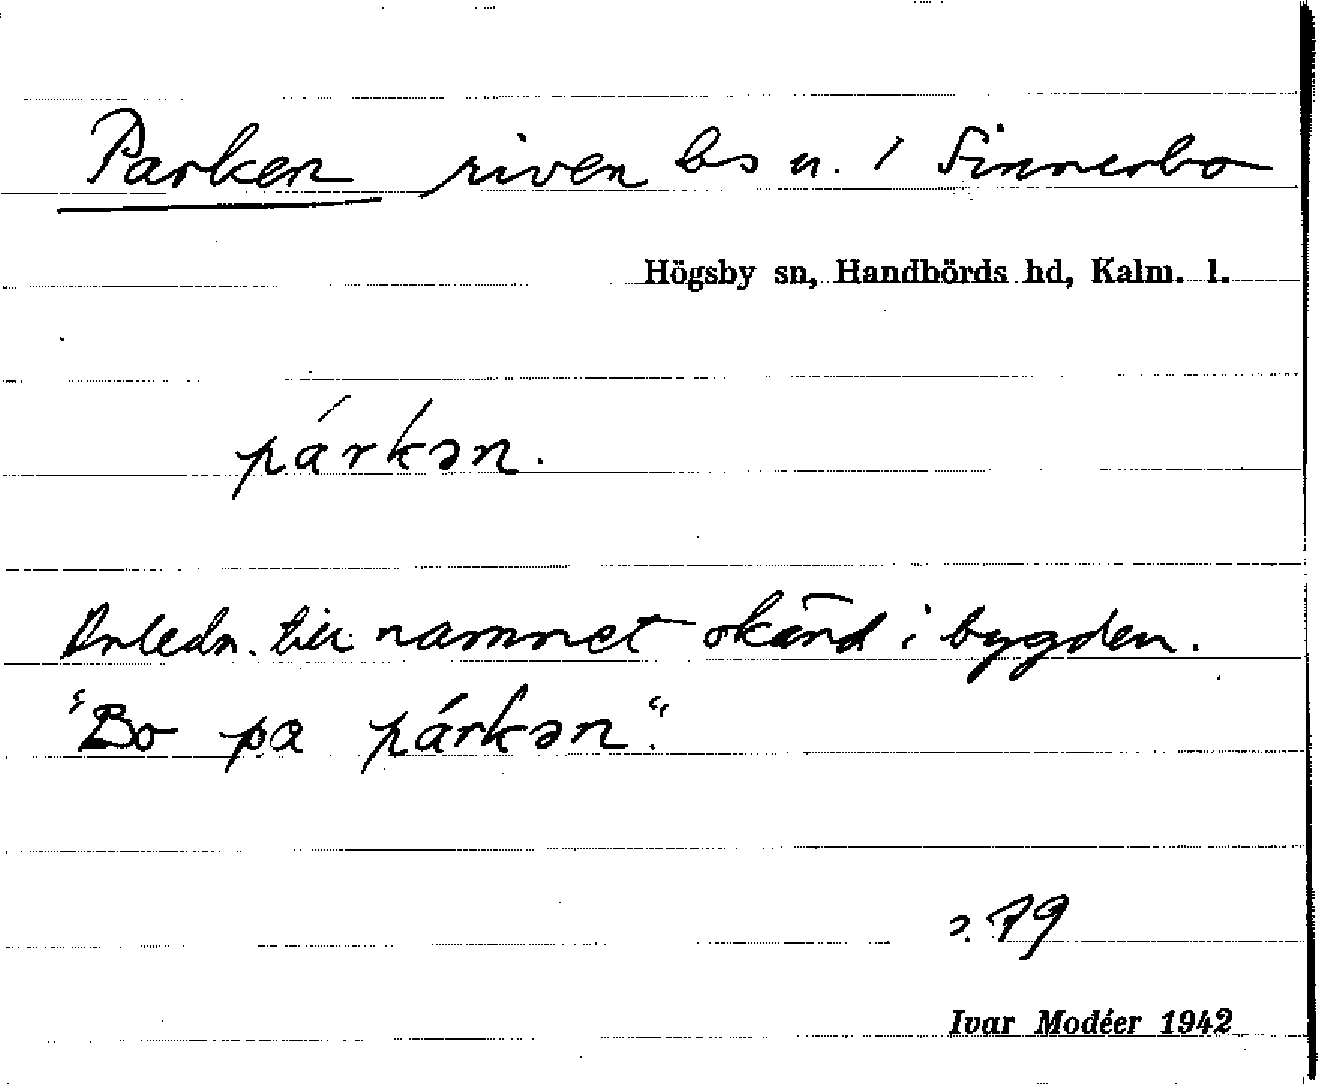 Parken riven bs u. 1 Sinnerbo
Högsby sn, Handbörds hd, Kalm. l.
párkən.
Anledn. till namnet okänd i bygden.
"Bo pa párkən".
2.79
Ivar Modéer 1942